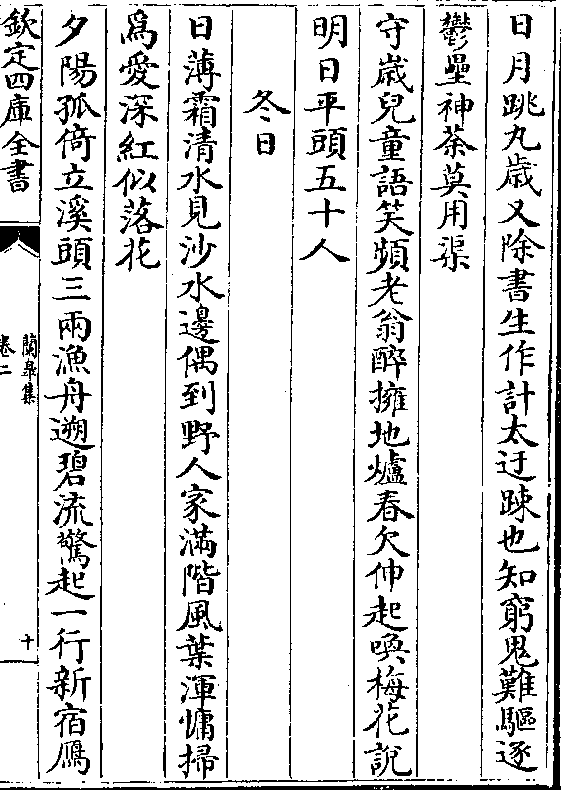 日月跳丸歳又除書生作計太迂踈也知窮鬼難驅逐
鬱壘神荼莫用渠
守歳兒童語笑頻老翁醉擁地爐春欠伸起喚梅花說
明日平頭五十人
冬日
日薄霜清水見沙水邊偶到野人家滿階風葉渾慵掃
爲愛深紅似落花
夕陽孤倚立溪頭三兩漁舟遡碧流驚起一行新宿鴈
欽定四庫全書
蘭臯集
卷二
十